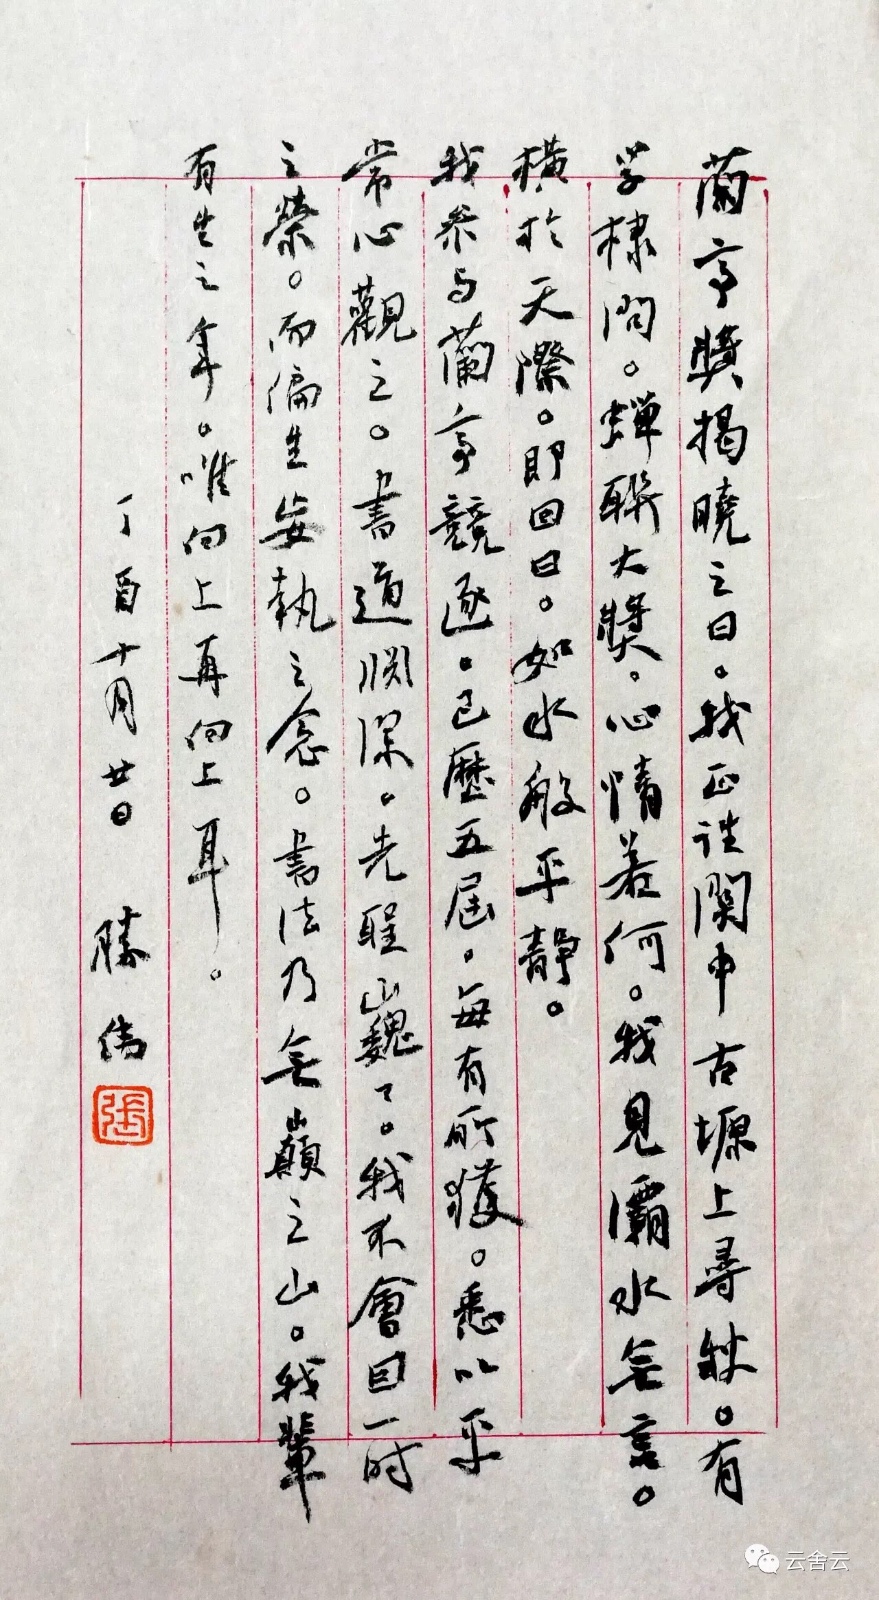 蘭亭獎揭曉之日。我正往關中古塬上尋秋。有
学棣问。蟬聯大獎。心情若何。我見灞水無言。
橫於天際。即回曰。如水般平靜。
我参与蘭亭競逐。已歷五屆。每有所獲。悉以平
常心觀之。書道渊深。先聖巍巍。我不會因一时
之榮。而偏生妄執之念。書法乃無巔之山。我輩
有生之年。唯向上再向上耳。
丁酉十月廿日 勝偉
張
云舍云